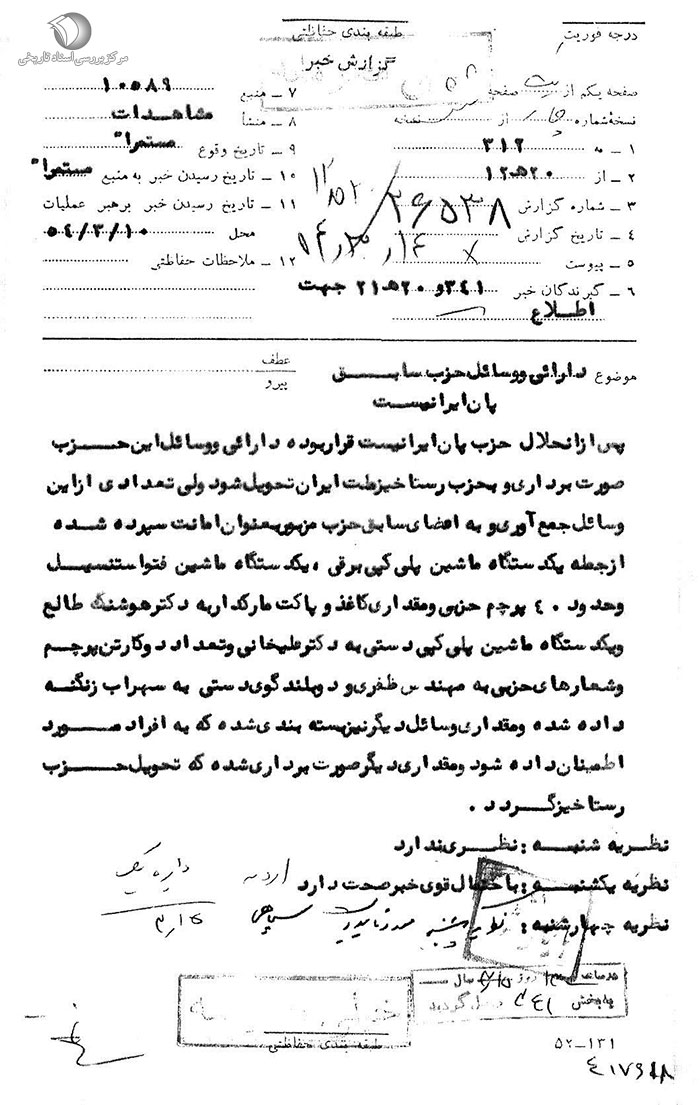 مرکز بررسی اسناد تاریخی
طبقه بندی حفاظتی
گزارش خبر
درجه فوریت
صفحه یکم از یک صفحه
نسخهٔ شماره از نسخه
۱ ـ به ۳۱۲
۲ ـ از ۲۰ھ۱۲
۳ ـ شماره گزارش ۲۶۵۳۸/
۴ ـ تاریخ گزارش
۵ ـ پیوست
۶ ـ گیرندگان خبر ۳۴۱و ۲۰ھ۲۱ جهت
اطلاع
۷ ـ منبع ۱۰۵۸۹
۸ ـ منشأ مشاهدات
۹ ـ تاریخ وقوع مستمرا"
۱۰ ـ تاریخ رسیدن خبر به منبع مستمرا"
۱۱ ـ تاریخ رسیدن خبر برهبر عملیات
محل ۵۴/۳/۱۰
۱۲ ـ ملاحظات حفاظتی
موضوع دارائی ووسائل حزب سابق
پان ایرانیست
عطف
پیرو
پس ازانحلال حزب پان ایرانیست قراربوده دارائی ووسائل این حزب
صورت برداری و بحزب رستاخیزملت ایران تحویل شود ولی تعدادی ازاین
وسائل جمع آوری و به اعضای سابق حزب مزبوربعنوان امانت سپرده شده
ازجمله یکدستگاه ماشین پلی کپی برقی ، یکدستگاه ماشین فتواستنسیل
وحدود ۴۰ پرچم حزبی ومقداری کاغذ و پاکت مارکداربه دکترهوشنگ طالع
ویکدستگاه ماشین پلی کپی دستی به دکترعلیخانی وتعداد دوکارتن پرچم
وشعارهای حزبی به مهندس ظفری و دوبلندگوی دستی به سهراب زنگنه
داده شده ومقداری وسائل دیگرنیزبسته بندی شده که به افراد مورد
اطمینان داده شود ومقداری دیگرصورت برداری شده که تحویل حزب
رستاخیزگردد .
نظریه شنبه : نظری ندارد
نظریه یکشنبه : باحتمال قوی خبرصحت دارد
نظریه چهارشنبه :
طبقه بندی حفاظتی
۵۲ـ۱۳۱